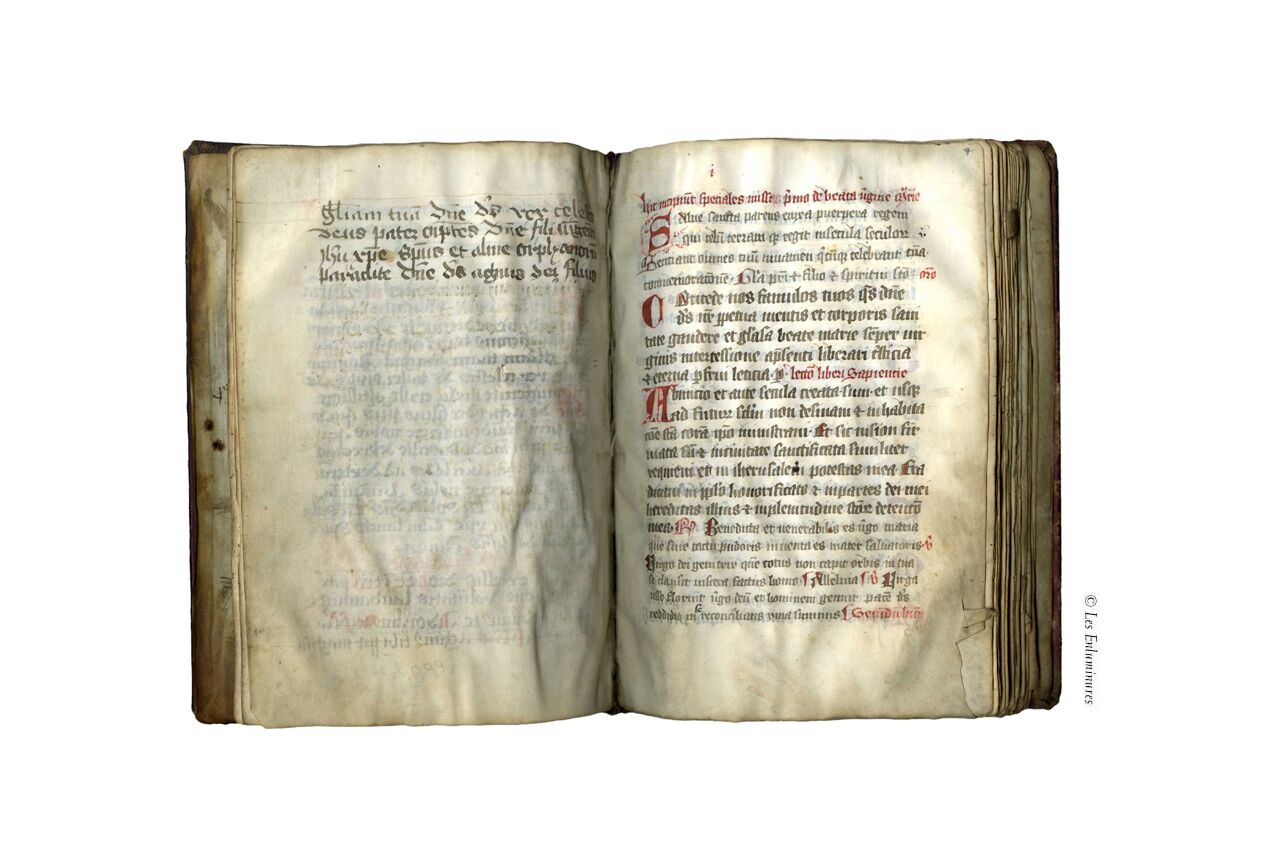 gl̄iam tuā dn̄e ds̄ rex celest
deus pater om̄ptēs Dn̄e fili
ihu xp̄e Sp̄us et alme
paraclite Dn̄e ds̄ agnus dei filius
i
Hic incipiūt speciales misse p̄mo de beata v̄gine
Salue sancta parens enixa puerpera regem
qui celū terram q̄ regit in secula seculor
Sentiant omnes tuū iuuamen q̄cūq celebrant tuā
commemoracionē. Gl̄a pr̄i & filio & spiritui sc̄o or̄o
Oncede nos famulos tuos qs̄ dn̄e
ds̄ nr̄ ꝑpetua mentis et corporis sani
tate gaudere et gl̄osa beate marie sēper uir
ginis intercessione a p̄senti liberari t̄sticia
& eterna ꝑfrui leticia ꝑ lectō libri Sapientie
Ab inicio et ante secula creata sum et usq
ad futur̄ sclm̄ non desinam & in habita
cōe sc̄a corā ip̄o ministraui. Et sic in sion fir
mata sū & in ciuitate sanctificata similiter
requieui et in iherusalem potestas mea Et ra
dicaui in pplo honorificato & in partes dei mei
hereditas illius & in plenitudine sc̄or detencō
mea. Benedicta et venerabilis es v̄go maria
que sine tactu pudoris inuenta es mater saluatoris. v̄
Virgo dei genitrix quē totus non capit orbis in tua
se clausit viscera factus homo Alleluia v̄ Virga
iesse floruit v̄go deū et hominem genuit pacē ds̄
reddidit in se reconcilians yma summis Secundū lucā
© Les Enluminures